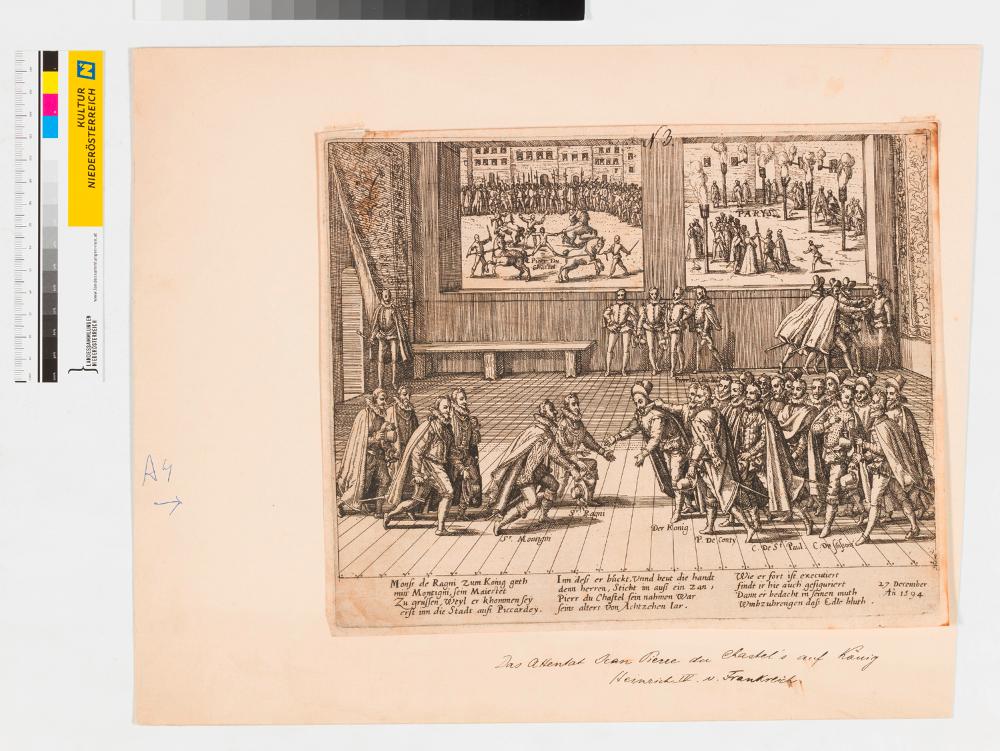 KULTUR
NIEDERÖSTERREICH
www.landessammlungen-noe.at
LANDESSAMMLUNGEN
NIEDERÖSTERREICH
A4
N 3.
PIERE DU
CHASTEL
PARYS
Sr. Ragni
Sr. Montgin
Der König
P. De Conty
C. De St. Paul.
C. De
Monsr de Ragni zum König geth
mit Montigni, sein Maiestet
Zu grüssen, Weyl er khommen sey
erst inn die Stadt auß Piccardey.
Inn dess er bückt, Vnnd beut die handt
denn herren, Sticht in auß ein zan,
Pierr du Chastel sein nahmen War
seins alters Von Achtzehen Iar.
Wie er fort ist executiert
findt ir hie auch gefiguriert
Dann er bedacht in seinen muth
Vmbzubrengen daß Edle bluth.
27 December
Añ 1594
Das Attentat Jean Pierre du Chastel's auf König
Heinrich IV. v. Frankreich